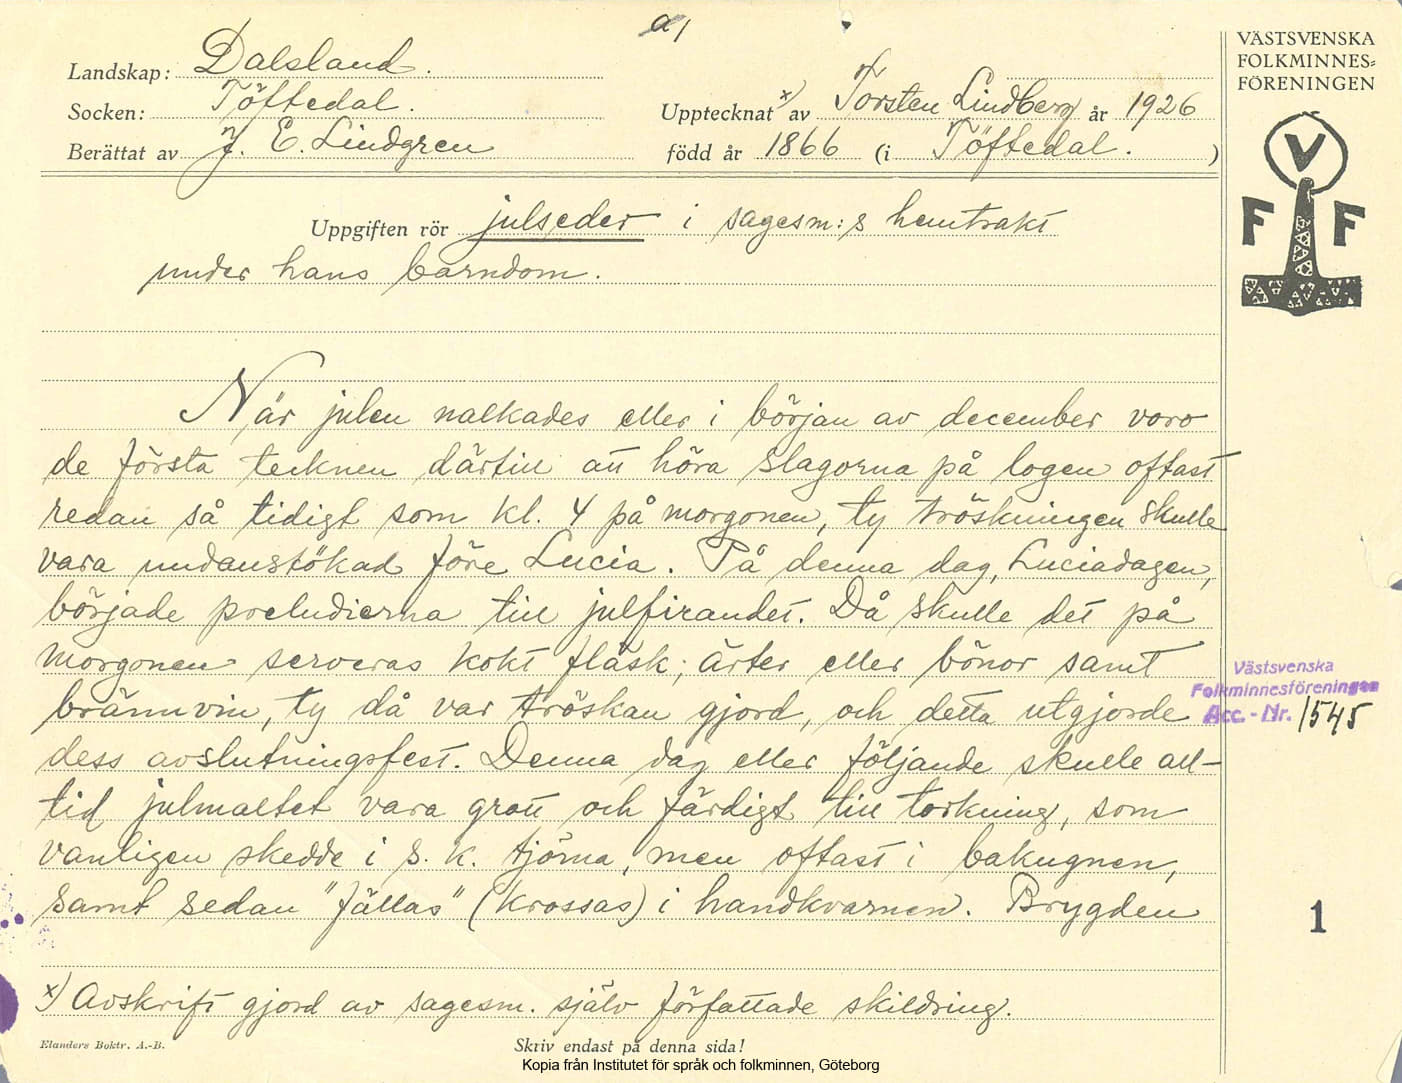 a1
Landskap: Dalsland.
Socken: Töftedal.
Upptecknat x) av Torsten Lindberg år 1926
Berättat av J. E. Lindgren född år 1866 (i Töftedal.)
VÄSTSVENSKA
FOLKMINNES=
FÖRENINGEN
V
F F
Uppgiften rör julseder i sagesm:s hemtrakt
under hans barndom.
När julen nalkades eller i början av december voro
de första tecknen därtill att höra slagorna på logen oftast
redan så tidigt som kl. 4 på morgonen, ty tröskningen skulle
vara undanstökad före Lucia. På denna dag, Luciadagen,
började preludierna till julfirandet. Då skulle det på
morgonen serveras kokt fläsk; ärter eller bönor samt
brännvin, ty då var tröskan gjord, och detta utgjorde
dess avslutningsfest. Denna dag eller följande skulle all-
tid julmaltet vara grott och färdigt till torkning, som
vanligen skedde i s. k. tjörna, men oftast i bakugnen,
samt sedan "fällas" (krossas) i handkvarnen. Brygden
Västsvenska
Folkminnesföreningen
Acc.-Nr. 1545
1
x) Avskrift gjord av sagesm. själv författade skildring.
Elanders Boktr. A.-B.
Skriv endast på denna sida!
Kopia från Institutet för språk och folkminnen, Göteborg